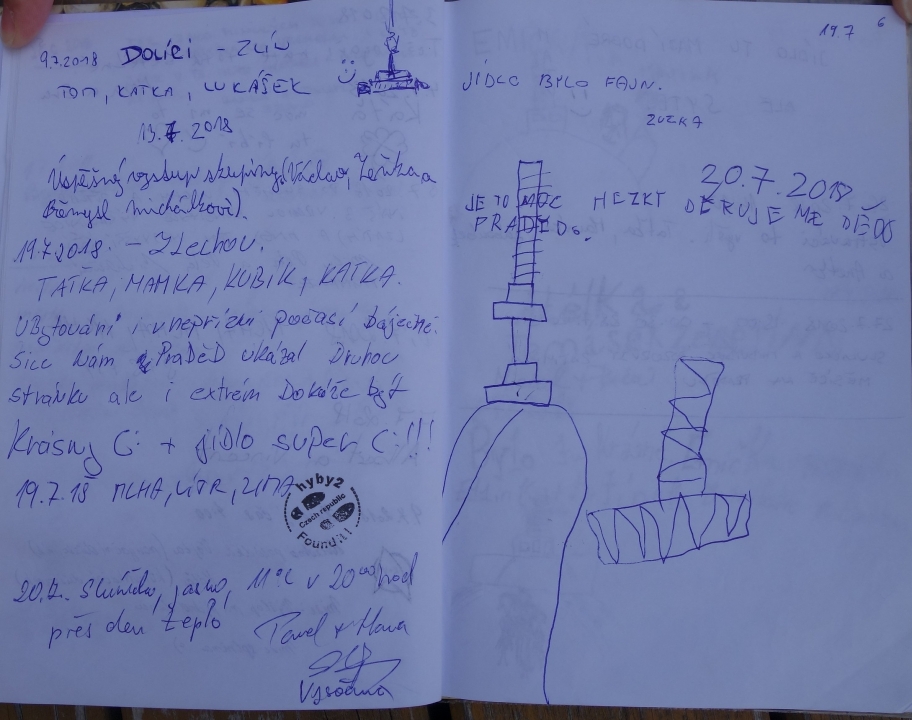 9.7.2018 DOLÍCI - ZLÍN
TOM, KATKA, LUKÁŠEK
13.7. 2018
Úspěšný výstup skupiny (Václav, Lenka a
Přemysl Michálkovi).
19.7.2018 - Zlechov.
TAŤKA, MAMKA, KUBÍK, KATKA.
Ubytování i v nepřízni počasí báječné.
Sice nám PRADĚD ukázal Druhou
stránku ale i extrém Dokáže být
Krásny C: + jídlo super C:!!!
19.7.18 MLHA, VÍTR, ZIMA
hyby2
Czech republic
Found it!
20.7. Sluníčko, jasno, 11°C v 20 00 hod
přes den teplo,
Pavel + Hana
Vysočina
19 7 6
JÍDLO BYLO FAJN.
ZUZKA
20.7.2018
JE TO MOC HEZKÝ DĚKUJEME DĚDO
PRADĚDO.